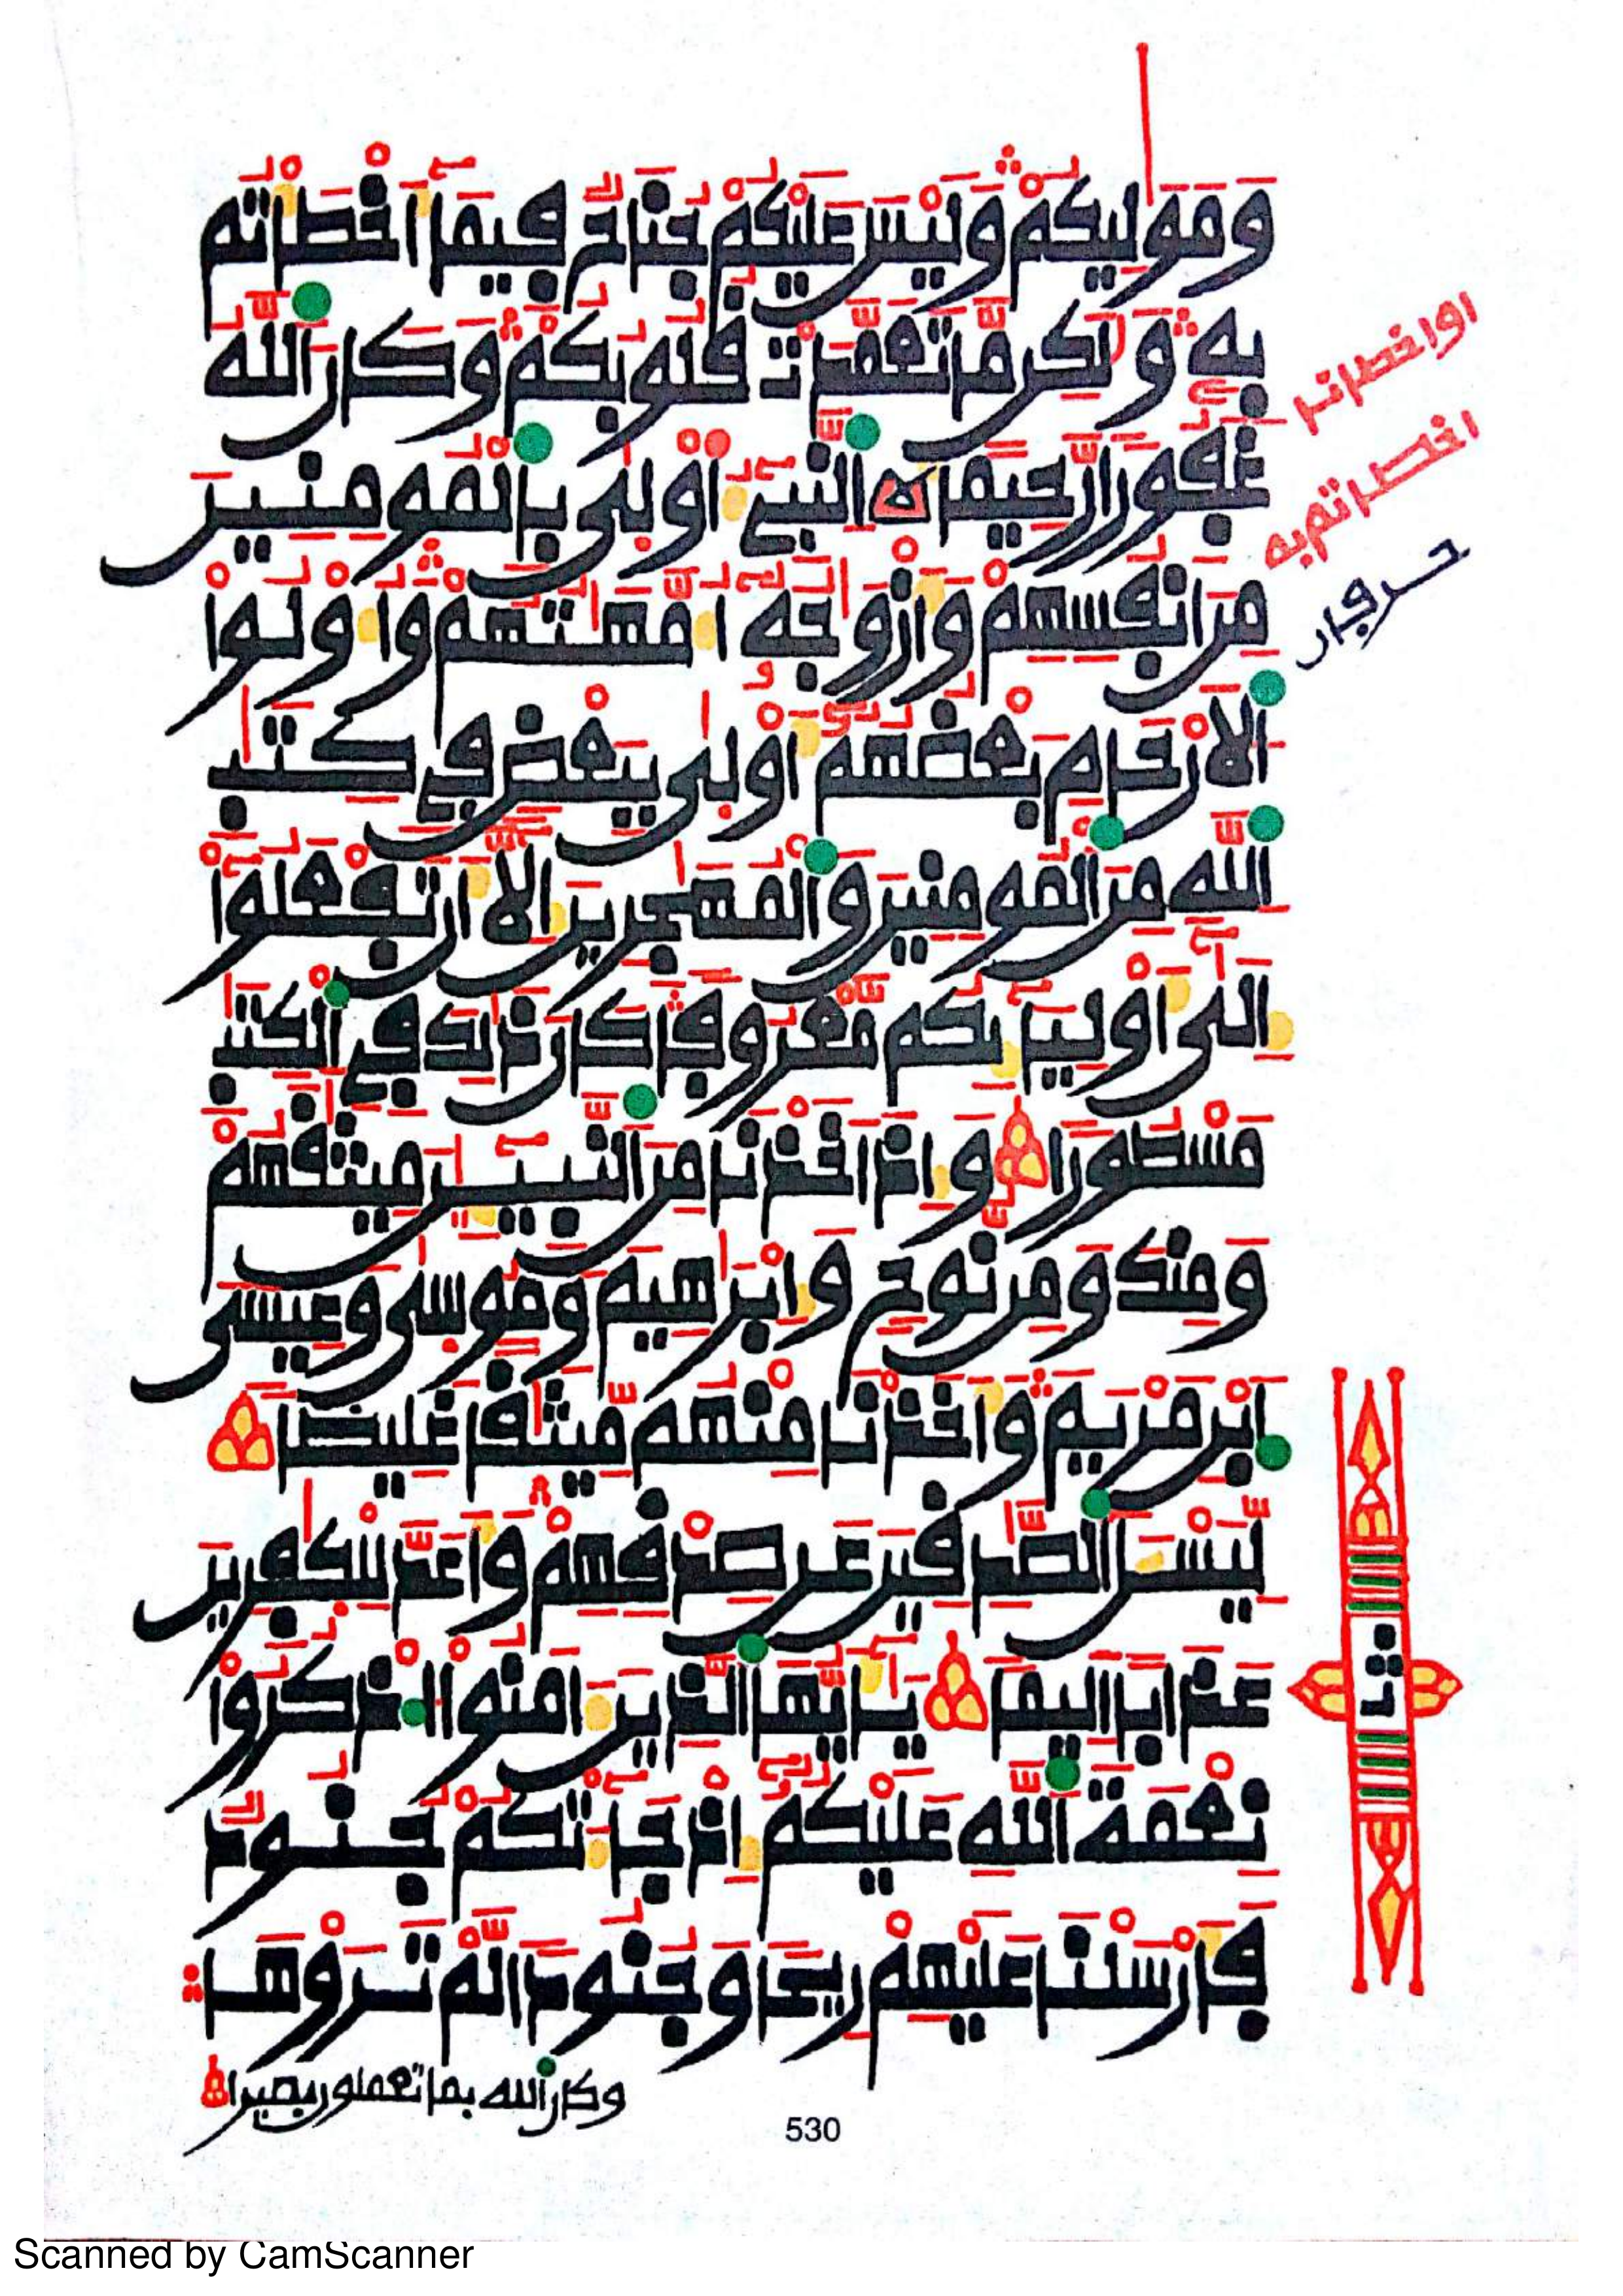 وَمَوَٰلِيكُمْ وَلَيْسَ عَلَيْكُمْ جُنَاحٌ فِيمَا أَخْطَأْتُم
بِهِ وَلَٰكِن مَّا تَعَمَّدَتْ قُلُوبُكُمْ وَكَانَ ٱللَّهُ
غَفُورًا رَّحِيمًا ٱلنَّبِيءُ أَوْلَىٰ بِٱلْمُومِنِينَ
مِنَ انفُسِهِمْ وَأَزْوَٰجُهُ أُمَّهَٰتُهُمْ وَأُوْلُوا
ٱلَارْحَامِ بَعْضُهُمُ أَوْلَىٰ بِبَعْضٍ فِي كِتَٰبِ
ٱللَّهِ مِنَ ٱلْمُومِنِينَ وَٱلْمُهَٰجِرِينَ إِلَّا أَن تَفْعَلُوا
إِلَىٰ أَوْلِيَائِكُم مَّعْرُوفًا كَانَ ذَٰلِكَ فِي ٱلْكِتَٰبِ
مَسْطُورًا وَإِذَ اخَذْنَا مِنَ ٱلنَّبِيـِٕينَ مِيثَٰقَهُمْ
وَمِنكَ وَمِن نُّوحٍ وَإِبْرَٰهِيمَ وَمُوسَىٰ وَعِيسَى
ٱبْنِ مَرْيَمَ وَأَخَذْنَا مِنْهُم مِّيثَٰقًا غَلِيظًا
لِّيَسْـَٔلَ ٱلصَّٰدِقِينَ عَن صِدْقِهِمْ وَأَعَدَّ لِلْكَٰفِرِينَ
عَذَابًا أَلِيمًا يَٰأَيُّهَا ٱلَّذِينَ ءَامَنُوا ٱذْكُرُوا
نِعْمَةَ ٱللَّهِ عَلَيْكُمُ إِذْ جَاءَتْكُمْ جُنُودٌ
فَأَرْسَلْنَا عَلَيْهِمْ رِيحًا وَجُنُودًا لَّمْ تَرَوْهَا
وكان ٱلله بما تعملون بصيرا
اخطاتم به
530
Scanned by CamScanner